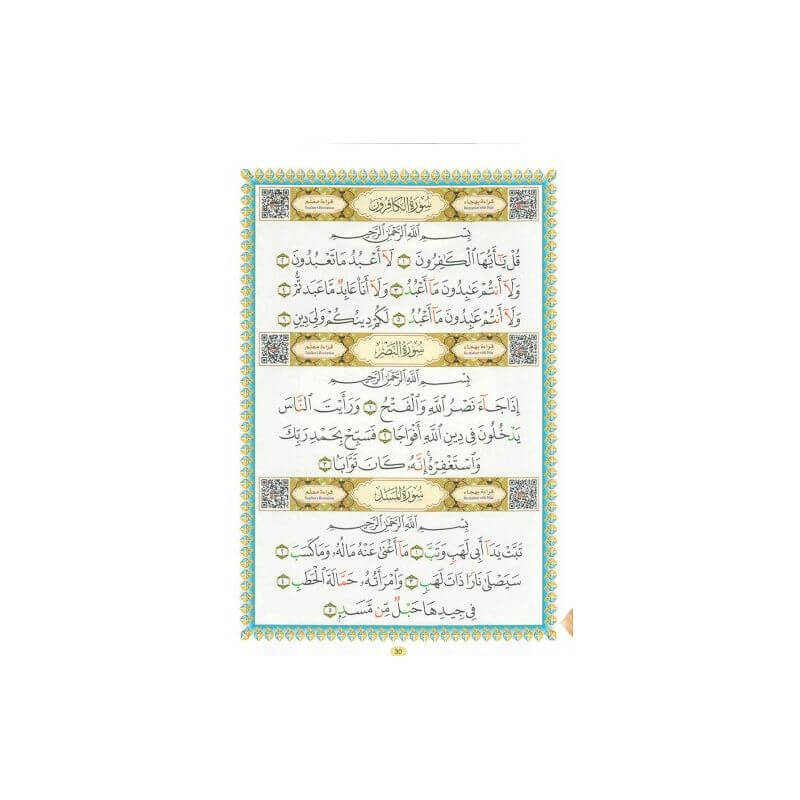 قراءة بهجاء سورة الكافرون قراءة معلم
Recitation with Hijai Teacher's Recitation
بِسْمِ اللَّهِ الرَّحْمَٰنِ الرَّحِيمِ
قُلْ يَا أَيُّهَا الْكَافِرُونَ ١ لَا أَعْبُدُ مَا تَعْبُدُونَ ٢
وَلَا أَنتُمْ عَابِدُونَ مَا أَعْبُدُ ٣ وَلَا أَنَا عَابِدٌ مَّا عَبَدتُّمْ ٤
وَلَا أَنتُمْ عَابِدُونَ مَا أَعْبُدُ ٥ لَكُمْ دِينُكُمْ وَلِيَ دِينِ ٦
قراءة بهجاء سورة النصر قراءة معلم
Recitation with Hijai Teacher's Recitation
بِسْمِ اللَّهِ الرَّحْمَٰنِ الرَّحِيمِ
إِذَا جَاءَ نَصْرُ اللَّهِ وَالْفَتْحُ ١ وَرَأَيْتَ النَّاسَ
يَدْخُلُونَ فِي دِينِ اللَّهِ أَفْوَاجًا ٢ فَسَبِّحْ بِحَمْدِ رَبِّكَ
وَاسْتَغْفِرْهُ إِنَّهُ كَانَ تَوَّابًا ٣
قراءة بهجاء سورة المسد قراءة معلم
Recitation with Hijai Teacher's Recitation
بِسْمِ اللَّهِ الرَّحْمَٰنِ الرَّحِيمِ
تَبَّتْ يَدَا أَبِي لَهَبٍ وَتَبَّ ١ مَا أَغْنَىٰ عَنْهُ مَالُهُ وَمَا كَسَبَ ٢
سَيَصْلَىٰ نَارًا ذَاتَ لَهَبٍ ٣ وَامْرَأَتُهُ حَمَّالَةَ الْحَطَبِ ٤
فِي جِيدِهَا حَبْلٌ مِّن مَّسَدٍ ٥
30